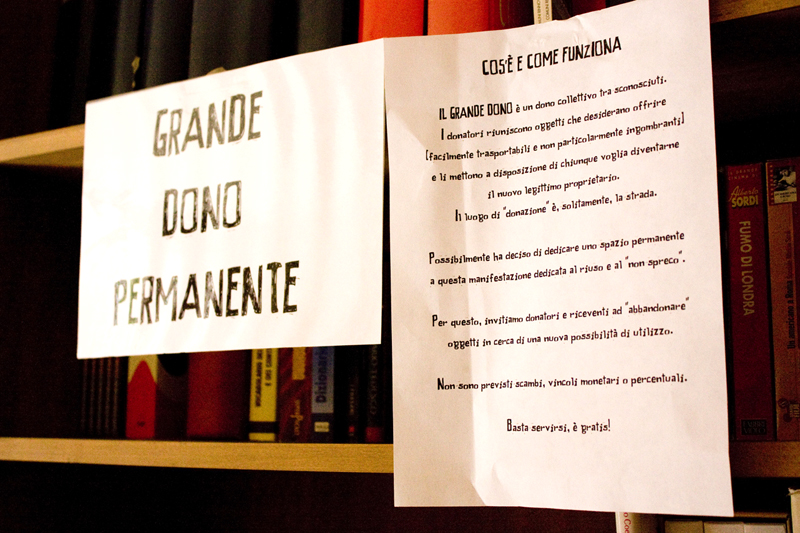 GRANDE
DONO
PERMANENTE
COS'È E COME FUNZIONA
IL GRANDE DONO è un dono collettivo tra sconosciuti.
I donatori riuniscono oggetti che desiderano offrire
[facilmente trasportabili e non particolarmente ingombranti]
e li mettono a disposizione di chiunque voglia diventarne
il nuovo legittimo proprietario.
Il luogo di "donazione" è, solitamente, la strada.
Possibilmente ha deciso di dedicare uno spazio permanente
a questa manifestazione dedicata al riuso e al "non spreco".
Per questo, invitiamo donatori e riceventi ad "abbandonare"
oggetti in cerca di una nuova possibilità di utilizzo.
Non sono previsti scambi, vincoli monetari o percentuali.
Basta servirsi, è gratis!
Alberto
SORDI
FUMO DI LONDRA
Dizionario